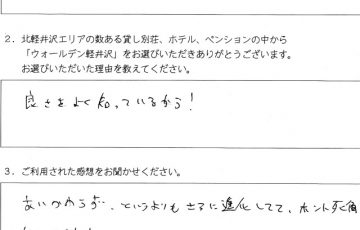 2. 北軽井沢エリアの数ある貸し別荘、ホテル、ペンションの中から
「ウォールデン軽井沢」をお選びいただきありがとうございます。
お選びいただいた理由を教えてください。
良さをよく知っているから!
3. ご利用された感想をお聞かせください。
あいかわらず、というよりもさらに進化してて、ホント